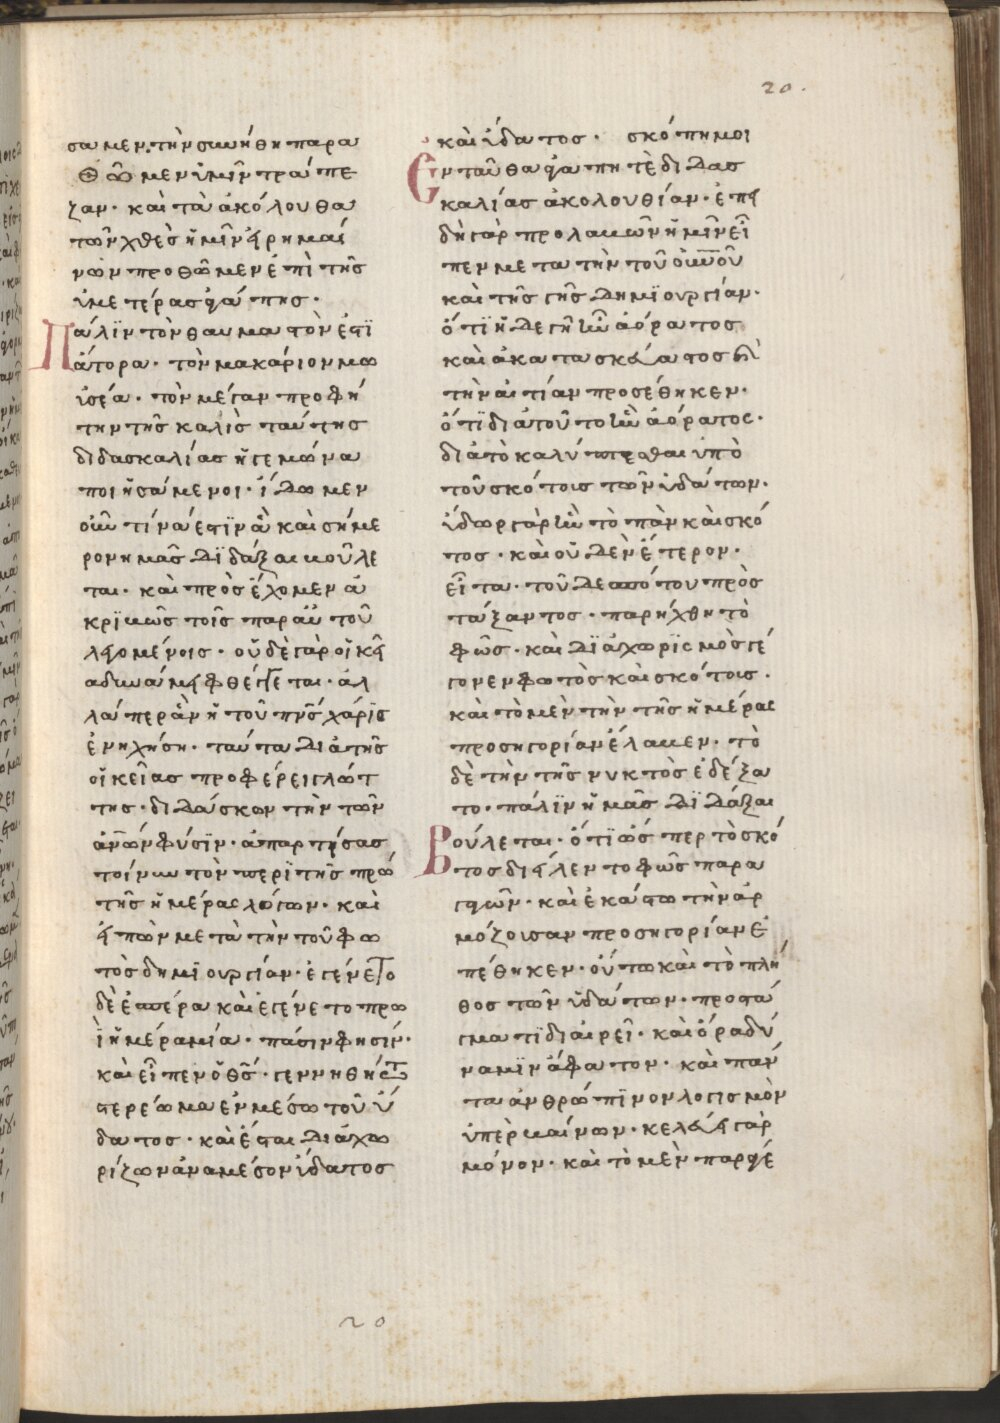 20.
σαμεν, τὴν συνήθη παρα
θῶμεν ὑμῖν τράπε
ζαν· καὶ τὰ ἀκόλουθα
τῶν χθὲς ἡμῖν εἰρημαί
νων προθῶμεν ἐπὶ τῆς
ὑμετέρας ἀγάπης·
Πάλϊν τὸν θαυμαστὸν ἐστϊ
άτορα· τὸν μακάριον μω
ϋσέα· τὸν μέγαν προφή
την τῆς καλῆς ταύτης
διδασκαλίας ἡγεμόνα
ποιησάμενοι· ἴδωμεν
οὖν τίνα ἐστϊν ἃ καὶ σήμε
ρον ἡμᾶς διδάξαι βούλε
ται· καὶ πρόσέχομεν ἀ
κριβῶς τοῖς παρ αὐτοῦ
λεγομένοις· οὐδὲ γὰρ οἰκεῖ
α δυνάμει φθέγγεται· ἀλ
λάπερ ἂν ἡ τοῦ πνς χάρϊς
ἐνηχήση· ταῦτα διὰ τῆς
οἰκείας προφέρει γλώτ
της· διδάσκων τὴν τῶν
ἀνων φύσϊν· ἀπαρτήσας
τοίνυν τὸν περὶ τῆς πρώ
της ἡμέρας λόγον· καὶ
εἰπὼν μετὰ τὴν τοῦ φω
τὸς δημϊουργίαν· ἐγένετο
δὲ ἑσπέρα καὶ ἐγένετο πρω
ῒ ἡμέρα μία· πάσιν φησίν·
καὶ εἶπεν ὁ θς· γεννηθήτω
στερέωμα ἐν μέσω τοῦ ὕ
δατος· καὶ ἔσται διάχω
ρίζων ἀναμέσον ὕδατος
καὶ ὕδατος· σκόπη μοι
Ενταῦθα ἀγάπητὲ διδασ
καλίας ἀκολουθίαν· ἐπει
δὴ γὰρ προλαβὼν ἡμῖν εἶ
πεν μετα τὴν τοῦ οὐνοῦ
καὶ τῆς γῆς δημϊουργίαν·
ὅτϊ ἡ δε γῆ ἦν ἀόρατος
καὶ ἀκατασκεύαστος καὶ
τὴν αἰτίαν προσέθηκεν·
ὅτϊ διὰ τοῦτο ἦν ἀόρατος·
διὰ τὸ καλύπτεσθαι ὑπὸ
τοῦ σκότους τῶν ὑδάτων·
ὕδωρ γὰρ ἦν τὸ πὰν καὶ σκό
τος· καὶ οὐδὲν ἕτερον·
εἶτα· τοῦ δεσπότου πρὸς
τάξαντος· παρήχθη τὸ
φῶς· καὶ δϊάχωρϊσμὸς γέ
γονεν φωτὸς καὶ σκότους·
καὶ τὸ μὲν τὴν τῆς ἡμέρας
προσηγορίαν ἔλαβεν· τὸ
δὲ τὴν τῆς νυκτὸς ἐδέξα
το· πάλϊν ἡμᾶς δϊδάξαι
Βούλεται· ὅτϊ ὥσπερ τὸ σκό
τος διεῖλεν το φῶς παρα
γαγὼν· καὶ ἐκάστω τὴν ἀρ
μόζουσαν προσηγορίαν ἐ
πέθηκεν· οὕτω καὶ τὸ πλῆ
θος τῶν ὑδάτων· προστά
γματϊ διαιρεῖ· καὶ ὅρα δύ
ναμϊν ἄφατον· καὶ πάν
τα ἀνθρώπϊνον λογισμὸν
ὑπὲρβαίνων· κελεύει γὰρ
μόνον· καὶ τὸ μὲν παρεγέ
20